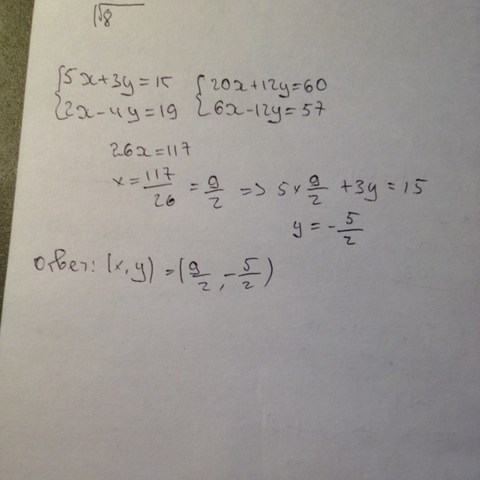 √8
{5x+3y=15 {20x+12y=60
{2x-4y=19 {6x-12y=57
26x=117
x=117/26=9/2 => 5×9/2+3y=15
y=-5/2
Ответ: (x,y)=(9/2,-5/2)